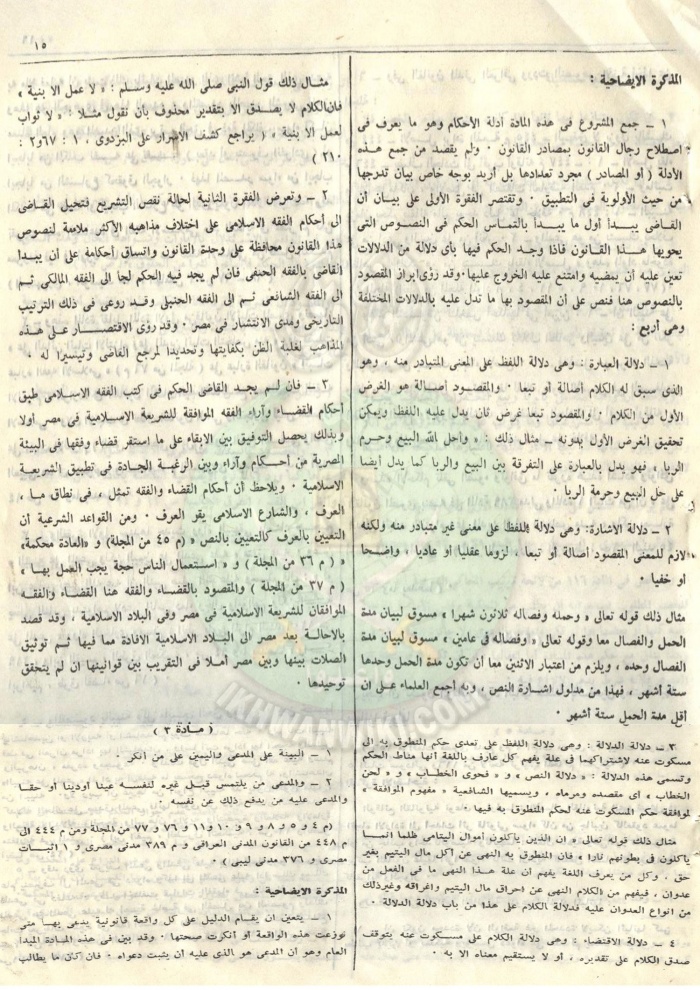 ١٥
المذكرة الايضاحية :
١ ــ جمع المشروع فى هذه المادة أدلة الأحكام وهو ما يعرف فى
اصطلاح رجال القانون بمصادر القانون ٠ ولم يقصد من جمع هذه
الأدلة ( أو المصادر ) مجرد تعدادها بل أريد بوجه خاص بيان تدرجها
من حيث الأولوية فى التطبيق ٠ وتقتصر الفقرة الأولى على بيان أن
القاضى يبدأ أول ما يبدأ بالتماس الحكم فى النصوص التى
يحويها هذا القانون فاذا وجد الحكم فيها بأى دلالة من الدلالات
تعين عليه أن يمضيه وامتنع عليه الخروج عليها٠وقد رؤى ابراز المقصود
بالنصوص هنا فنص على أن المقصود بها ما تدل عليه بالدلالات المختلفة
وهى أربع :
١ ــ دلالة العبارة : وهى دلالة اللفظ على المعنى المتبادر منه ، وهو
الذى سبق له الكلام أصالة أو تبعا ٠ والمقصود أصالة هو الغرض
الأول من الكلام ٠ والمقصود تبعا غرض ثان يدل عليه اللفظ ويمكن
تحقيق الغرض الأول بدونه ــ مثال ذلك : « وأحل الله البيع وحرم
الربا ، فهو يدل بالعبارة على التفرقة بين البيع والربا كما يدل أيضا
على حل البيع وحرمة الربا ٠
٢ ــ دلالة الاشارة: وهى دلالة اللفظ على معنى غير متبادر منه ولكنه
لازم للمعنى المقصود أصالة أو تبعا ، لزوما عقليا أو عاديا ، واضحا
أو خفيا ٠
مثال ذلك قوله تعالى « وحمله وفصاله ثلاثون شهرا » مسوق لبيان مدة
الحمل والفصال معا وقوله تعالى « وفصاله فى عامين » مسوق لبيان مدة
الفصال وحده ، ويلزم من اعتبار الاثنين معا أن تكون مدة الحمل وحدها
ستة أشهر ، فهذا من مدلول اشارة النص ، وبه أجمع العلماء على ان
أقل مدة الحمل ستة أشهر ٠
٣ ــ دلالة الدلالة : وهى دلالة اللفظ على تعدى حكم المنطوق به الى
مسكوت عنه لاشتراكهما فى علة يفهم كل عارف باللغة أنها مناط الحكم
وتسمى هذه الدلالة : « دلالة النص » و « فحوى الخطاب » و « لحن
الخطاب » أى مقصده ومرماه ، ويسميها الشافعية « مفهوم الموافقة »
موافقة حكم المسكوت عنه لحكم المنطوق به فيها ٠
مثال ذلك قوله تعالى « ان الذين يأكلون أموال اليتامى ظلما انما
يأكلون فى بطونهم نارا » فان المنطوق به النهى عن أكل مال اليتيم بغير
حق ٠ وكل من يعرف اللغة يفهم ان علة هذا النهى ما فى الفعل من
عدوان ، فيفهم من الكلام النهى عن احراق مال اليتيم واغراقه وغيرذلك
من انواع العدوان عليه فدلالة الكلام على هذا من باب دلالة الدلالة ٠
٤ ــ دلالة الاقتضاء : وهى دلالة الكلام على مسكوت عنه يتوقف
صدق الكلام على تقديره ، أو لا يستقيم معناه الا به ٠
مثال ذلك قول النبى صلى الله عليه وسلم : « لا عمل الا بنية »
فان الكلام لا يصدق الا بتقدير محذوف بأن نقول مثلا : « لا ثواب
لعمل الا بنية » ( يراجع كشف الاسرار على البزدوى ، ١ : ٦٧ و٢ :
٢١٠ )
٢ ــ وتعرض الفقرة الثانية لحالة نقص التشريع فتحيل القاضى
الى أحكام الفقه الاسلامى على اختلاف مذاهبه الأكثر ملاءمة لنصوص
هذا القانون محافظة على وحدة القانون واتساق أحكامه على أن يبدأ
القاضى بالفقه الحنفى فان لم يجد فيه الحكم لجأ الى الفقه المالكى ثم
الى الفقه الشافعى ثم الى الفقه الحنبلى وقد روعى فى ذلك الترتيب
التاريخى ومدى الانتشار فى مصر ٠ وقد رؤى الاقتصار على هذه
المذاهب لغلبة الظن بكفايتها وتحديدا لمرجع القاضى وتيسيرا له ٠
٣ ــ فان لم يجد القاضى الحكم فى كتب الفقه الاسلامى طبق
أحكام القضاء وآراء الفقه الموافقة للشريعة الاسلامية فى مصر أولا
وبذلك يحصل التوفيق بين الابقاء على ما استقر قضاء وفقها فى البيئة
المصرية من أحكام وآراء وبين الرغبة الجادة فى تطبيق الشريعة
الاسلامية ٠ ويلاحظ أن أحكام القضاء والفقه تمثل ، فى نطاق ما ،
العرف ، والشارع الاسلامى يقر العرف ٠ ومن القواعد الشرعية أن
التعيين بالعرف كالتعيين بالنص » (م ٤٥ من المجلة) و «العادة محكمة»
( م ٣٦ من المجلة ) و « استعمال الناس حجة يجب العمل بها »
( م ٣٧ من المجلة ) والمقصود بالقضاء والفقه هنا القضاء والفقه
الموافقان للشريعة الاسلامية فى مصر وفى البلاد الاسلامية ، وقد قصد
بالاحالة بعد مصر الى البلاد الاسلامية الافادة مما فيها ثم توثيق
الصلات بينها وبين مصر أملا فى التقريب بين قوانينها ان لم يتحقق
توحيدها ٠
( مـادة ٣ )
١ ــ البينة على المدعى واليمين على من أنكر ٠
٢ ــ والمدعى من يلتمس قبل غيره لنفسه عينا أودينا أو حقا
والمدعى عليه من يدفع ذلك عن نفسه ٠
(م ٤ و ٥ و ٨ و ٩ و ١٠ و١١ و ٧٦ و ٧٧ من المجلة ومن م ٤٤٤ الى
م ٤٤٨ من القانون المدنى العراقى و م ٣٨٩ مدنى مصرى و ١ اثبات
مصرى و ٣٧٦ مدنى ليبى ) ٠
المذكرة الايضاحية :
١ ــ يتعين ان يقام الدليل على كل واقعة قانونية يدعى بها متى
نوزعت هذه الواقعة أو أنكرت صحتها ٠ وقد بين فى هذه المادة المبدأ
العام وهو أن المدعى هو الذى عليه أن يثبت دعواه ٠ فان كان ما يطالب
IKHWANWIKI.COM